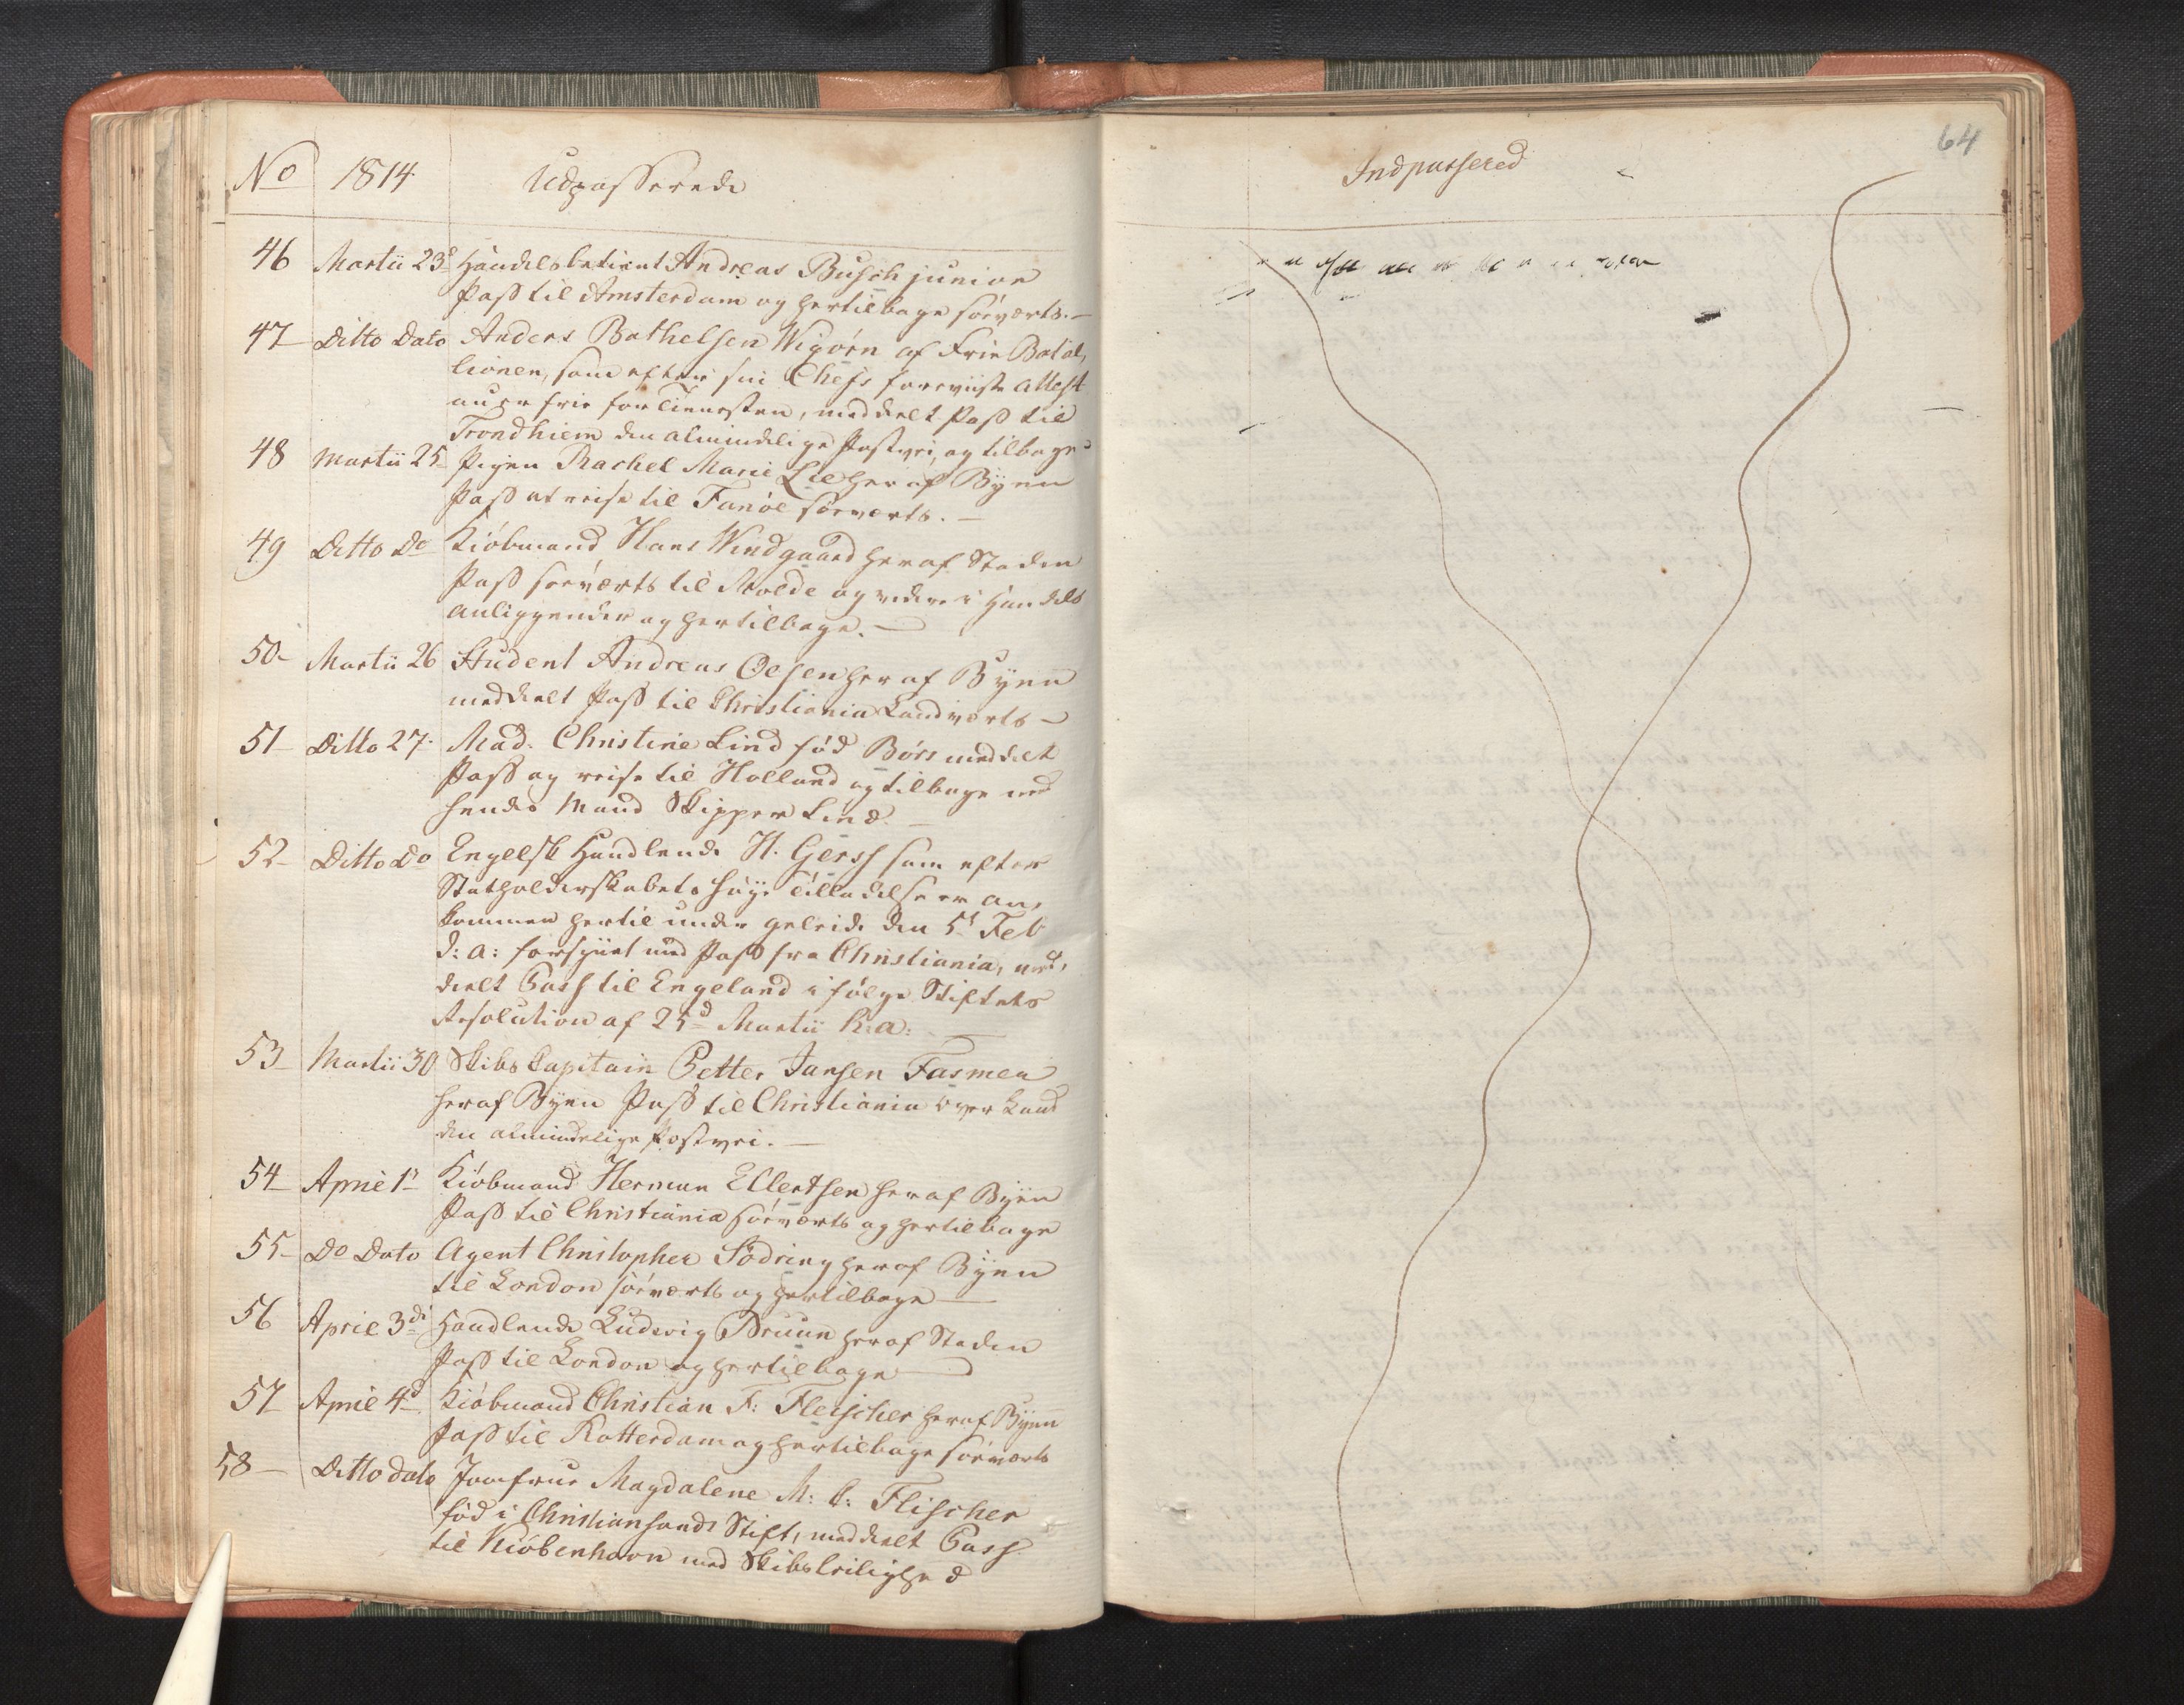 No 1814. Udpasserede
46 Martii 23d Handelsbetient Andreas Busch junior
Pass til Amsterdam og hertilbage söeværts. —
47 Ditto Dato Anders Bathelsen Wigörn af Frie Batal,
lionen, som efter sin Chefs foreviiste Attest
nu er frie for Tienesten, meddeelt Pass til
Trondhiem den almindelige Postvei, og tilbage
48 Martii 25 Pigen Rachel Marie Lie her af Byen
Pass at reise til Fanöe söeværts. —
49 Ditto Do Kiöbmand Hans Windgaard her af Staden
Pass söeværts til Molde og videre i Handels
Anliggender og hertilbage. —
50 Martii 26 Student Andreas Oelsen her af Byen
meddeelt Pass til Christiania Landværts —
51 Ditto 27 Mad. Christine Lind föd Börs meddelt
Pass og reise til Holland og tilbage med
hendes Mand Skipper Lind —
52 Ditto Do Engelsk Handlende H. Gerss som efter
Statholderskabets höye Tilladelse er an,
kommen hertil under geleide den 5t Feb
d: a: forsynet med Pass fra Christiania, med,
deelt Pass til Engeland i fölge Stiftets
Resolution af 25d Martii h: a:
53 Martii 30 Skibs Capitain Petter Jansen Fasmer
her af Byen Pass til Christiania over Land
den almindelige Postvei. —
54 April 1t Kiöbmand Herman Ellertsen her af Byen
Pass til Christiania söeværts og hertilbage
55 Do Dato Agent Christopher Södring her af Byen
til London söeværts og hertilbage —
56 April 3di Handlende Ludvig Bruun her af Staden
Pass til London og hertilbage —
57 April 4d Kiöbmand Christian F: Fleischer her af Byen
Pass til Rotterdam og hertilbage söeværts
58 Ditto dato Jomfrue Magdalene M: C: Flischer
föd i Christiansands Stift, meddeelt Pass
til Kiöbenhavn med Skibsleilighed
Indpassered
64